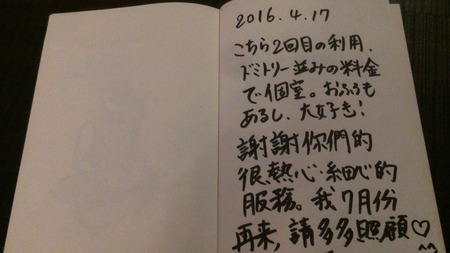 2016.4.17
こちら2回目の利用.
ドミトリー並みの料金
で個室。おふろも
あるし、大好き!
謝謝你們的
很熱心細心的
服務。我7月份
再来,請多多照顧♡
^^